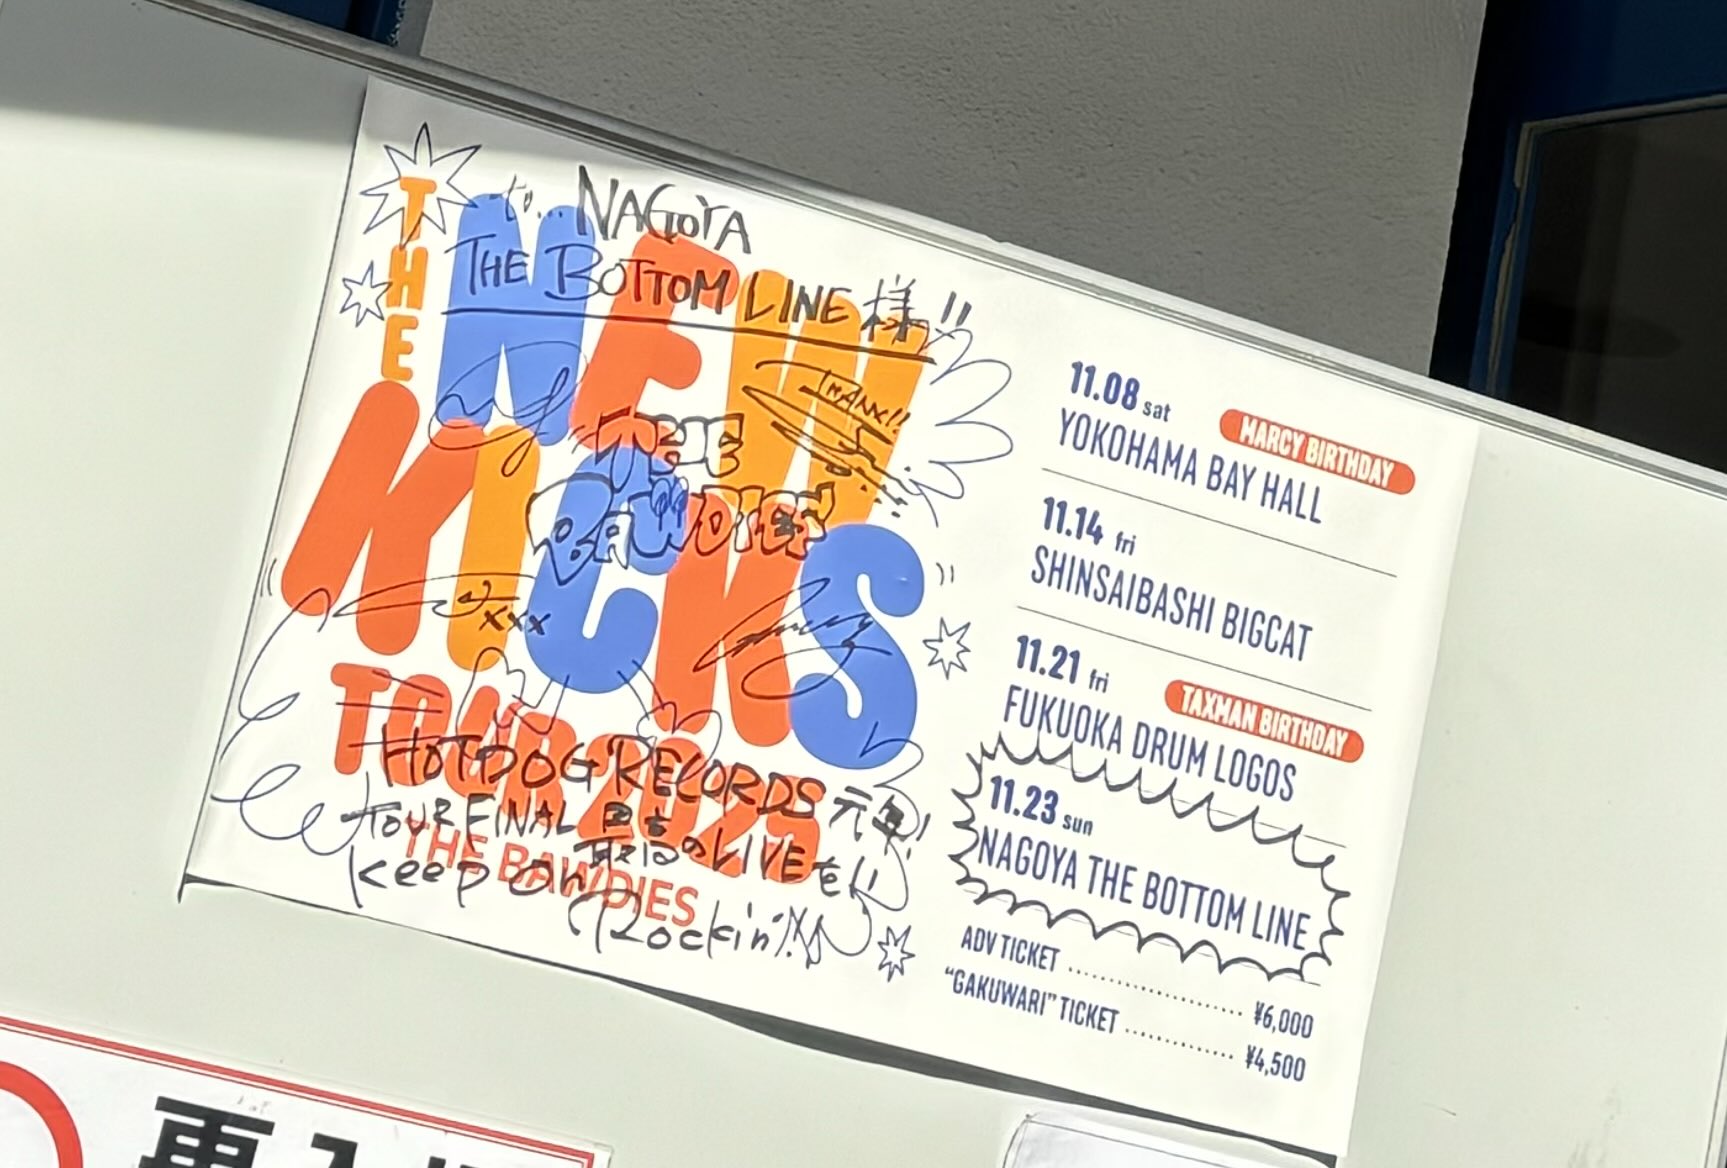 to... NAGOYA
THE BOTTOM LINE 様!!
THE
NEW
KICKS
THANK!!
THE
BAWDIES
xxx
TOUR 2025
THE BAWDIES
HOTDOG RECORDS 元年!
TOUR FINAL
のLIVEを!!
Keep on
Rockin'
11.08 sat
MARCY BIRTHDAY
YOKOHAMA BAY HALL
11.14 fri
SHINSAIBASHI BIGCAT
11.21 fri
TAXMAN BIRTHDAY
FUKUOKA DRUM LOGOS
11.23 sun
NAGOYA THE BOTTOM LINE
ADV TICKET ........................ ¥6,000
“GAKUWARI” TICKET ............... ¥4,500
再入場